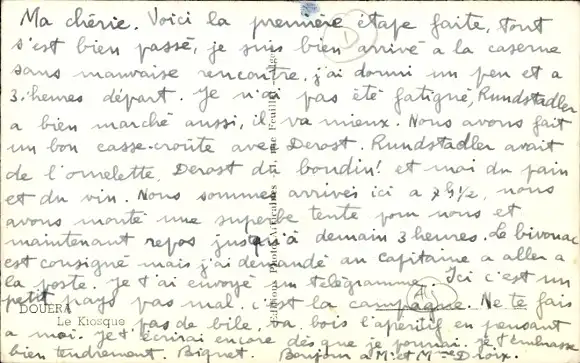 Ma chérie. Voici la première étape faite, tout
s'est bien passé, je suis bien arrivé a la caserne
sans mauvaise rencontre, j'ai dormi un peu et a
3 heures départ. Je n'ai pas été fatigué, Rundstadler
a bien marché aussi, il va mieux. Nous avons fait
un bon casse-croûte avec Derost. Rundstadler avait
de l'omelette, Derost du boudin! et moi du pain
et du vin. Nous sommes arrivés ici a 7h½, nous
avons monté une superbe tente pour nous et
maintenant repos jusqu'à demain 3 heures. Le bivouac
est consigné mais j'ai demandé au capitaine a aller a
la poste. Je t'ai envoyé un télégramme. Ici c'est un
petit pays pas mal. c'est la campagne. Ne te fais
pas de bile, va bois l'apéritif en pensant
a moi. Je t'écrirai encore dès que je pourrai. Je t'embrasse
bien tendrement. Bonjour a M. et Mme
DOUERA
Le Kiosque
Editions Photo-Africaines